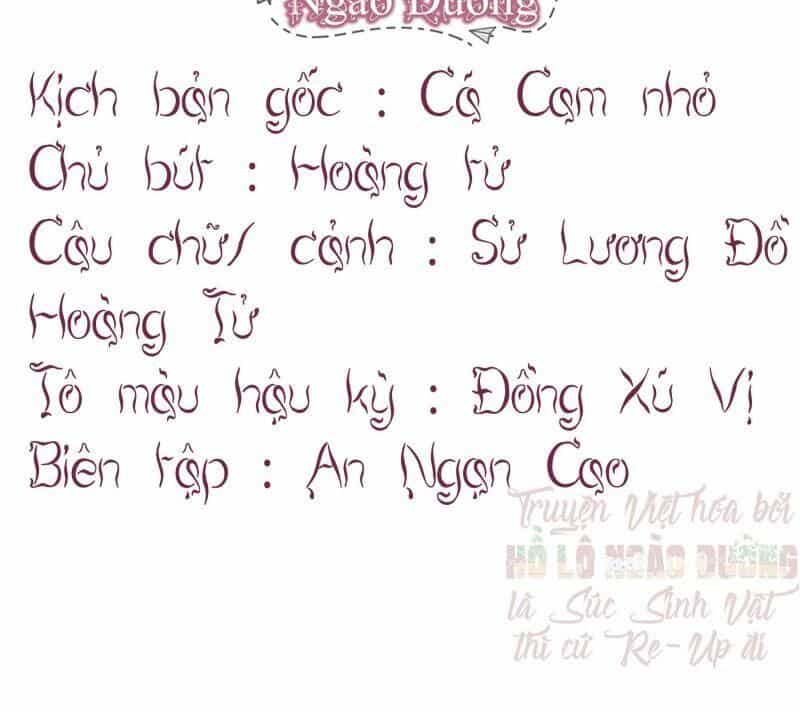 Ngào Đường
Kịch bản gốc : Cá Cam nhỏ
Chủ bút : Hoàng tử
Câu chữ/ cảnh : Sử Lương Đồ
Hoàng Tử
Tô màu hậu kỳ : Đồng Xú Vị
Biên tập : An Ngạn Cao
Truyện Việt hóa bởi
HỒ LÔ NGÀO ĐƯỜNG
là Súc Sinh Vật
thì cứ Re-Up đi